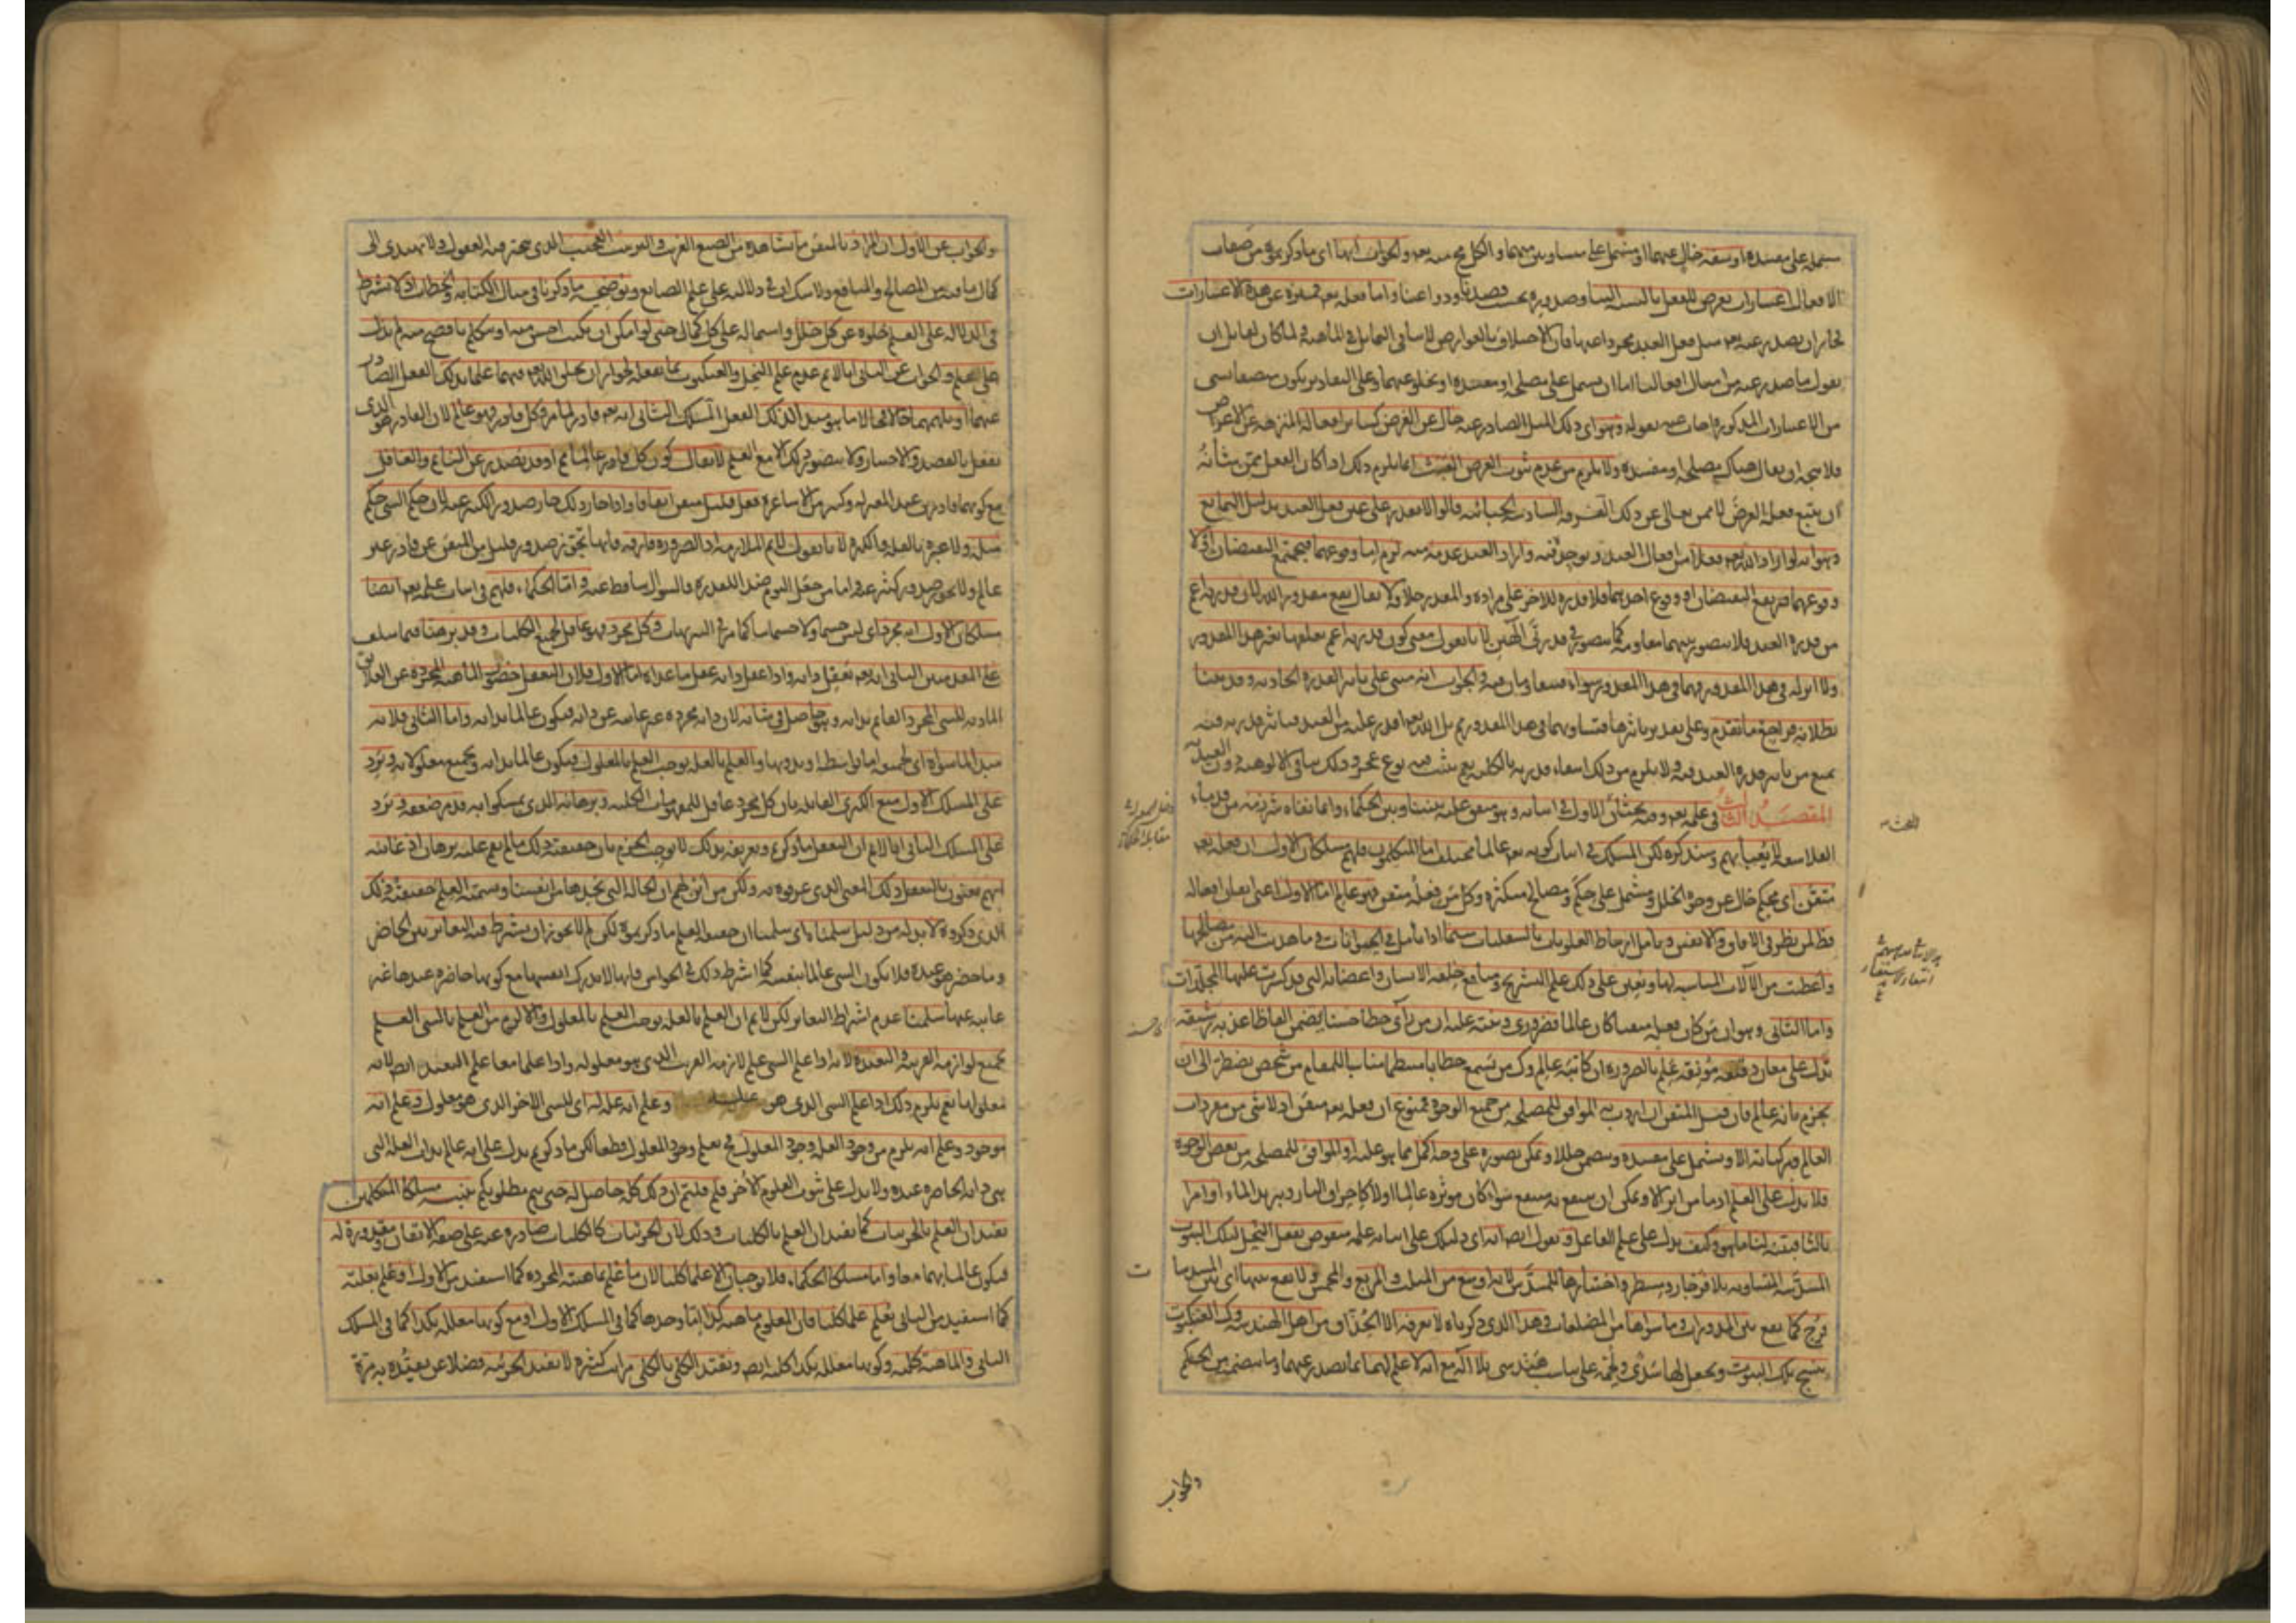 مشتملة على مفسدة او سفه خال عنهما او مشتمل على متساويين منهما والكل محال منه تعالى والجواب انها اى ما ذكرتموه من صفات
الافعال اعتبارات تعرض للفعل بالنسبة الينا وصدوره بحسب قصدنا ودواعينا واما فعله تعالى فمنزه عن هذه الاعتبارات
فجاز ان يصدر عنه تعالى مثل فعل العبد مجردا عنها فان الاختلاف بالعوارض لا ينافى التماثل فى الماهية ولما كان لقائل ان
يقول ما صدر عنه من امثال افعالنا اما ان يشتمل على مصلحة او مفسدة او يخلو عنهما وعلى التقادير يكون متصفا بشئ
من الاعتبارات المذكورة اجاب عنه بقوله وهو اى ذلك المثل الصادر عنه خال عن الغرض كسائر افعاله المنزهة عن الاغراض
فلا يتجه ان يقال هناك مصلحة او مفسدة ولا يلزم من عدم ثبوت الغرض العبث انما يلزم ذلك اذا كان الفعل ممن شأنه
ان يتبع فعله الغرض لا ممن تعالى عن ذلك الفرقة السادسة الجبائية قالوا لا يقدر على عين فعل العبد بدليل التمانع
وهو انه لو اراد الله تعالى فعلا من افعال العبد يوجد فيه واراد العبد عدمه منه لزم اما وقوعهما فيجتمع النقيضان او لا
وقوعهما فيرتفع النقيضان او وقوع احدهما فلا قدرة للاخر على مراده والمقدر خلافه لا يقال يقع مقدور الله لان قدرته اعم
من قدرة العبد فلا يتصور بينهما مقاومة كما يتصور فى قدرتى الهين لانا نقول معنى كون قدرته اعم تعلقها بغير هذا المقدور
ولا اثر له فى هذا المقدور فهما فى هذا المقدور سواء فيتقاومان فيه والجواب انه مبنى على تأثير القدرة الحادثة وقد بينا
بطلانه فراجع ما تقدم وعلى تقدير تأثيرها فتساويهما فى هذا المقدور ممنوع بل الله تعالى اقدر عليه من العبد فتأثير قدرته فيه
يمنع من تأثير قدرة العبد فيه ولا يلزم من ذلك انتفاء قدرته بالكلية بل يثبت فيه نوع عجز وذلك ينافى الالوهية دون العبدية
المقصد الثالث فى علمه تعالى وفيه بحثان الاول فى اثباته وهو متفق عليه بيننا وبين الحكماء وانما نفاه شرذمة من قدماء
الفلاسفة لا يعبأ بهم وسنذكره لكن المسلك فى اثبات كونه تعالى عالما مختلف اما المتكلمون فلهم مسلكان الاول ان فعله تعالى
متقن اى محكم خال عن وجوه الخلل ومشتمل على حكم ومصالح متكثرة وكل من فعله متقن فهو عالم اما الاول اعنى اتقان افعاله
فظاهر لمن نظر فى الافاق والانفس وتأمل ارتباط العلويات بالسفليات سيما اذا تأمل فى الحيوانات وما هديت اليه من مصالحها
واعطيت من الآلات المناسبة لها ويعين على ذلك علم التشريح ومنافع خلقة الانسان واعضائه التى قد كسرت عليها المجلدات
واما الثانى وهو ان من كان فعله متقنا كان عالما فضرورى وينبه عليه ان من رأى خطا حسنا يتضمن الفاظا عذبة رشيقة
تدل على معان دقيقة مونقة علم بالضرورة ان كاتبه عالم وكذا من يسمع خطابا منتظما مناسبا للمقام من شخص يضطر الى ان
يجزم بانه عالم فان قيل المتقن ان اردت به الموافق للمصلحة من جميع الوجوه فممنوع ان فعله تعالى متقن اذ لا شئ من مفردات
العالم ومركباته الا ويشتمل على مفسدة ويتضمن خللا ويمكن تصوره على وجه اكمل مما هو عليه او الموافق للمصلحة من بعض الوجوه
فلا يدل على العلم اذ ما من اثر الا ويمكن ان ينتفع به منتفع سواء كان مؤثره عالما او لا كاحراق النار وتبريد الماء او امرا
ثالثا فبينه لنا ما هو وكيف يدل على علم الفاعل ونقول ايضا انه اى دليلك على اثبات علمه منقوض بفعل النحل لتلك البيوت
المسدسة المتساوية بلا فرجار ومسطر واختيارها للمسدس لانه اوسع من المثلث والمربع والمخمس ولا يقع بينها اى بين المسدسات
فرج كما يقع بين المدورات وما سواها من المضلعات وهذا الذى ذكرناه لا يعرفه الا الحذاق من اهل الهندسة وكذا العنكبوت
ينسج تلك البيوت ويجعل لها سدى ولحمة على تناسب هندسى بلا آلة مع انه لا علم لهما بما يصدر عنهما وما يتضمنه من الحكم
والجواب
والجواب عن الاول ان المراد بالمتقن ما نشاهده من الصنع الغريب والترتيب العجيب الذى تتحير فيه العقول ولا تهتدى الى
كمال ما فيه من المصالح والمنافع ولا شك ان فى دلالته على علم الصانع وتوضيحه ما ذكرنا فى مثال الكتابة والخطاب اذ لا يشترط
فى الدلالة على العلم خلوه عن كل خلل واشتماله على كل كمال حتى لو امكن ان يكتب احسن منه او يتكلم بافصح منه لم يدل
على العلم والجواب عن الثانى انا لا نسلم عدم علم النحل والعنكبوت بما يفعله لجواز ان يخلق الله تعالى فيهما علما بذلك الفعل الصادر
عنهما او يلهمهما حالا فحالا ما هو مبدأ لذلك الفعل المسلك الثانى انه تعالى قادر لما مر وكل قادر فهو عالم لان القادر هو الذى
يفعل بالقصد والاختيار ولا يتصور ذلك الا مع العلم لا يقال كون كل قادر عالما ممنوع اذ قد يصدر عن النائم والغافل
مع كونهما قادرين عند المعتزلة وكثير من الاشاعرة فعل قليل متقن اتفاقا واذا جاز ذلك جاز صدور الكثير عنه لان حكم الشئ حكم
مثله ولا عبرة بالقلة والكثرة لانا نقول لا نسلم الملازمة اذ الضرورة فارقة فانها تجوز صدور قليل من المتقن عن قادر غير
عالم ولا تجوز صدور كثير عنه واما من جعل النوم ضد القدرة فالسؤال ساقط عنه واما الحكماء فلهم فى اثبات علمه تعالى ايضا
مسلكان الاول انه مجرد اى ليس جسما ولا جسمانيا كما مر فى التنزيهات وكل مجرد فهو عاقل لجميع الكليات وقد برهنا فيما سلف
على المقدمتين الثانى انه تعالى يعقل ذاته واذا عقل ذاته عقل ما عداه اما الاول فلان التعقل حضور الماهية المجردة عن العلائق
المادية للشئ المجرد القائم بذاته وهو حاصل فى شأنه لان ذاته مجردة غير غائبة عن ذاته فيكون عالما بذاته واما الثانى فلانه
مبدأ لما سواه اى لجميعه اما بواسطة او بدونها والعلم بالعلة يوجب العلم بالمعلول فيكون عالما بذاته وبجميع معلولاته ويرد
على المسلك الاول منع الكبرى القائلة بان كل مجرد عاقل للمفهومات الكلية وبرهانه الذى تمسكوا به قد مر ضعفه ويرد
على المسلك الثانى انا لا نسلم ان التعقل ما ذكرتم وتعريفه بذلك لا يوجب الجزم بان حقيقته ذلك ما لم يقم عليه برهان اذ غايته
انهم يعنون بالتعقل ذلك المعنى الذى عرفوه به ولكن من اين لهم ان الحالة التى نجدها من انفسنا ونسميه العلم حقيقته ذلك
الذى ذكروه لا بد له من دليل سلمناه اى سلمنا ان حقيقة العلم ما ذكرتموه لكن لم لا يجوز ان يشترط فيه التغاير بين الحاضر
وما حضر هو عنده فلا يكون الشئ عالما بنفسه كما اشترط ذلك فى الحواس فانها لا تدرك انفسها مع كونها حاضرة عندها غير
غائبة عنها سلمنا عدم اشتراط التغاير لكن لا نسلم ان العلم بالعلة يوجب العلم بالمعلول والا لزم من العلم بالشئ العلم
بجميع لوازمه القريبة والبعيدة لانه اذا علم الشئ علم لازمه القريب الذى هو معلوله واذا علما معا علم البعيد ايضا لانه
معلولهما نعم يلزم ذلك اذا علم الشئ الذى هو علته وعلم انه علة له اى للشئ الآخر الذى هو معلول وعلم انه
موجود وعلم انه يلزم من وجود العلة وجود المعلول فح يعلم وجود المعلول قطعا لكن ما ذكرتم يدل على انه عالم بذات العلة التى
هى ذاته الحاضرة عنده ولا يدل على ثبوت العلوم الأخر فلم قلتم ان ذلك كله حاصل له حتى يتم مطلوبكم تنبيه مسلكا المتكلمين
يفيدان العلم بالجزئيات كما يفيدان العلم بالكليات وذلك لان الجزئيات كالكليات صادرة عنه على صفة الاتقان ومقدورة له
فيكون عالما بهما معا واما مسلكا الحكماء فلا يوجبان الا علما كليا لان ما علم بماهيته المجردة كما استفيد من الاول او علم بعلته
كما استفيد من الثانى يعلم علما كليا فان المعلوم ماهية كذا اما وحدها كما فى المسلك الاول او مع كونها معللة بكذا كما فى المسلك
الثانى والماهية كلية وكونها معللة بكذا كلى ايضا وتقييد الكلى بالكلى مرات كثيرة لا يفيد الجزئية فضلا عن تقييده به مرة